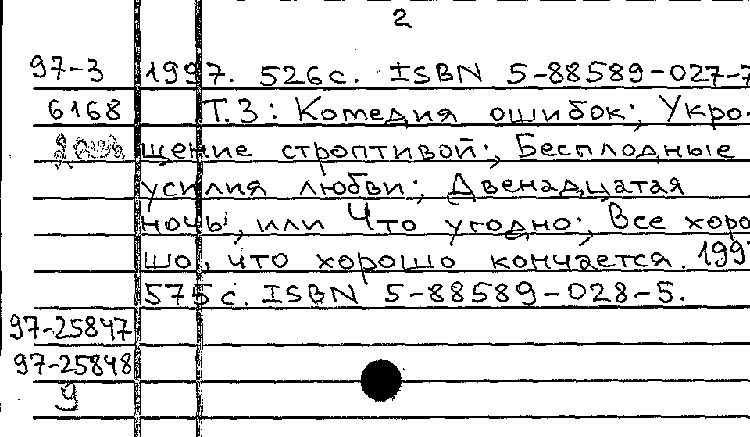 2
97-3 1997. 526с. ISBN 5-88589-027-7
6168 Т.3: Комедия ошибок; Укро-
щение строптивой; Бесплодные
усилия любви; Двенадцатая
ночь, или Что угодно; Все хоро
шо, что хорошо кончается. 199
575с. ISBN 5-88589-028-5.
97-25847
97-25848
9